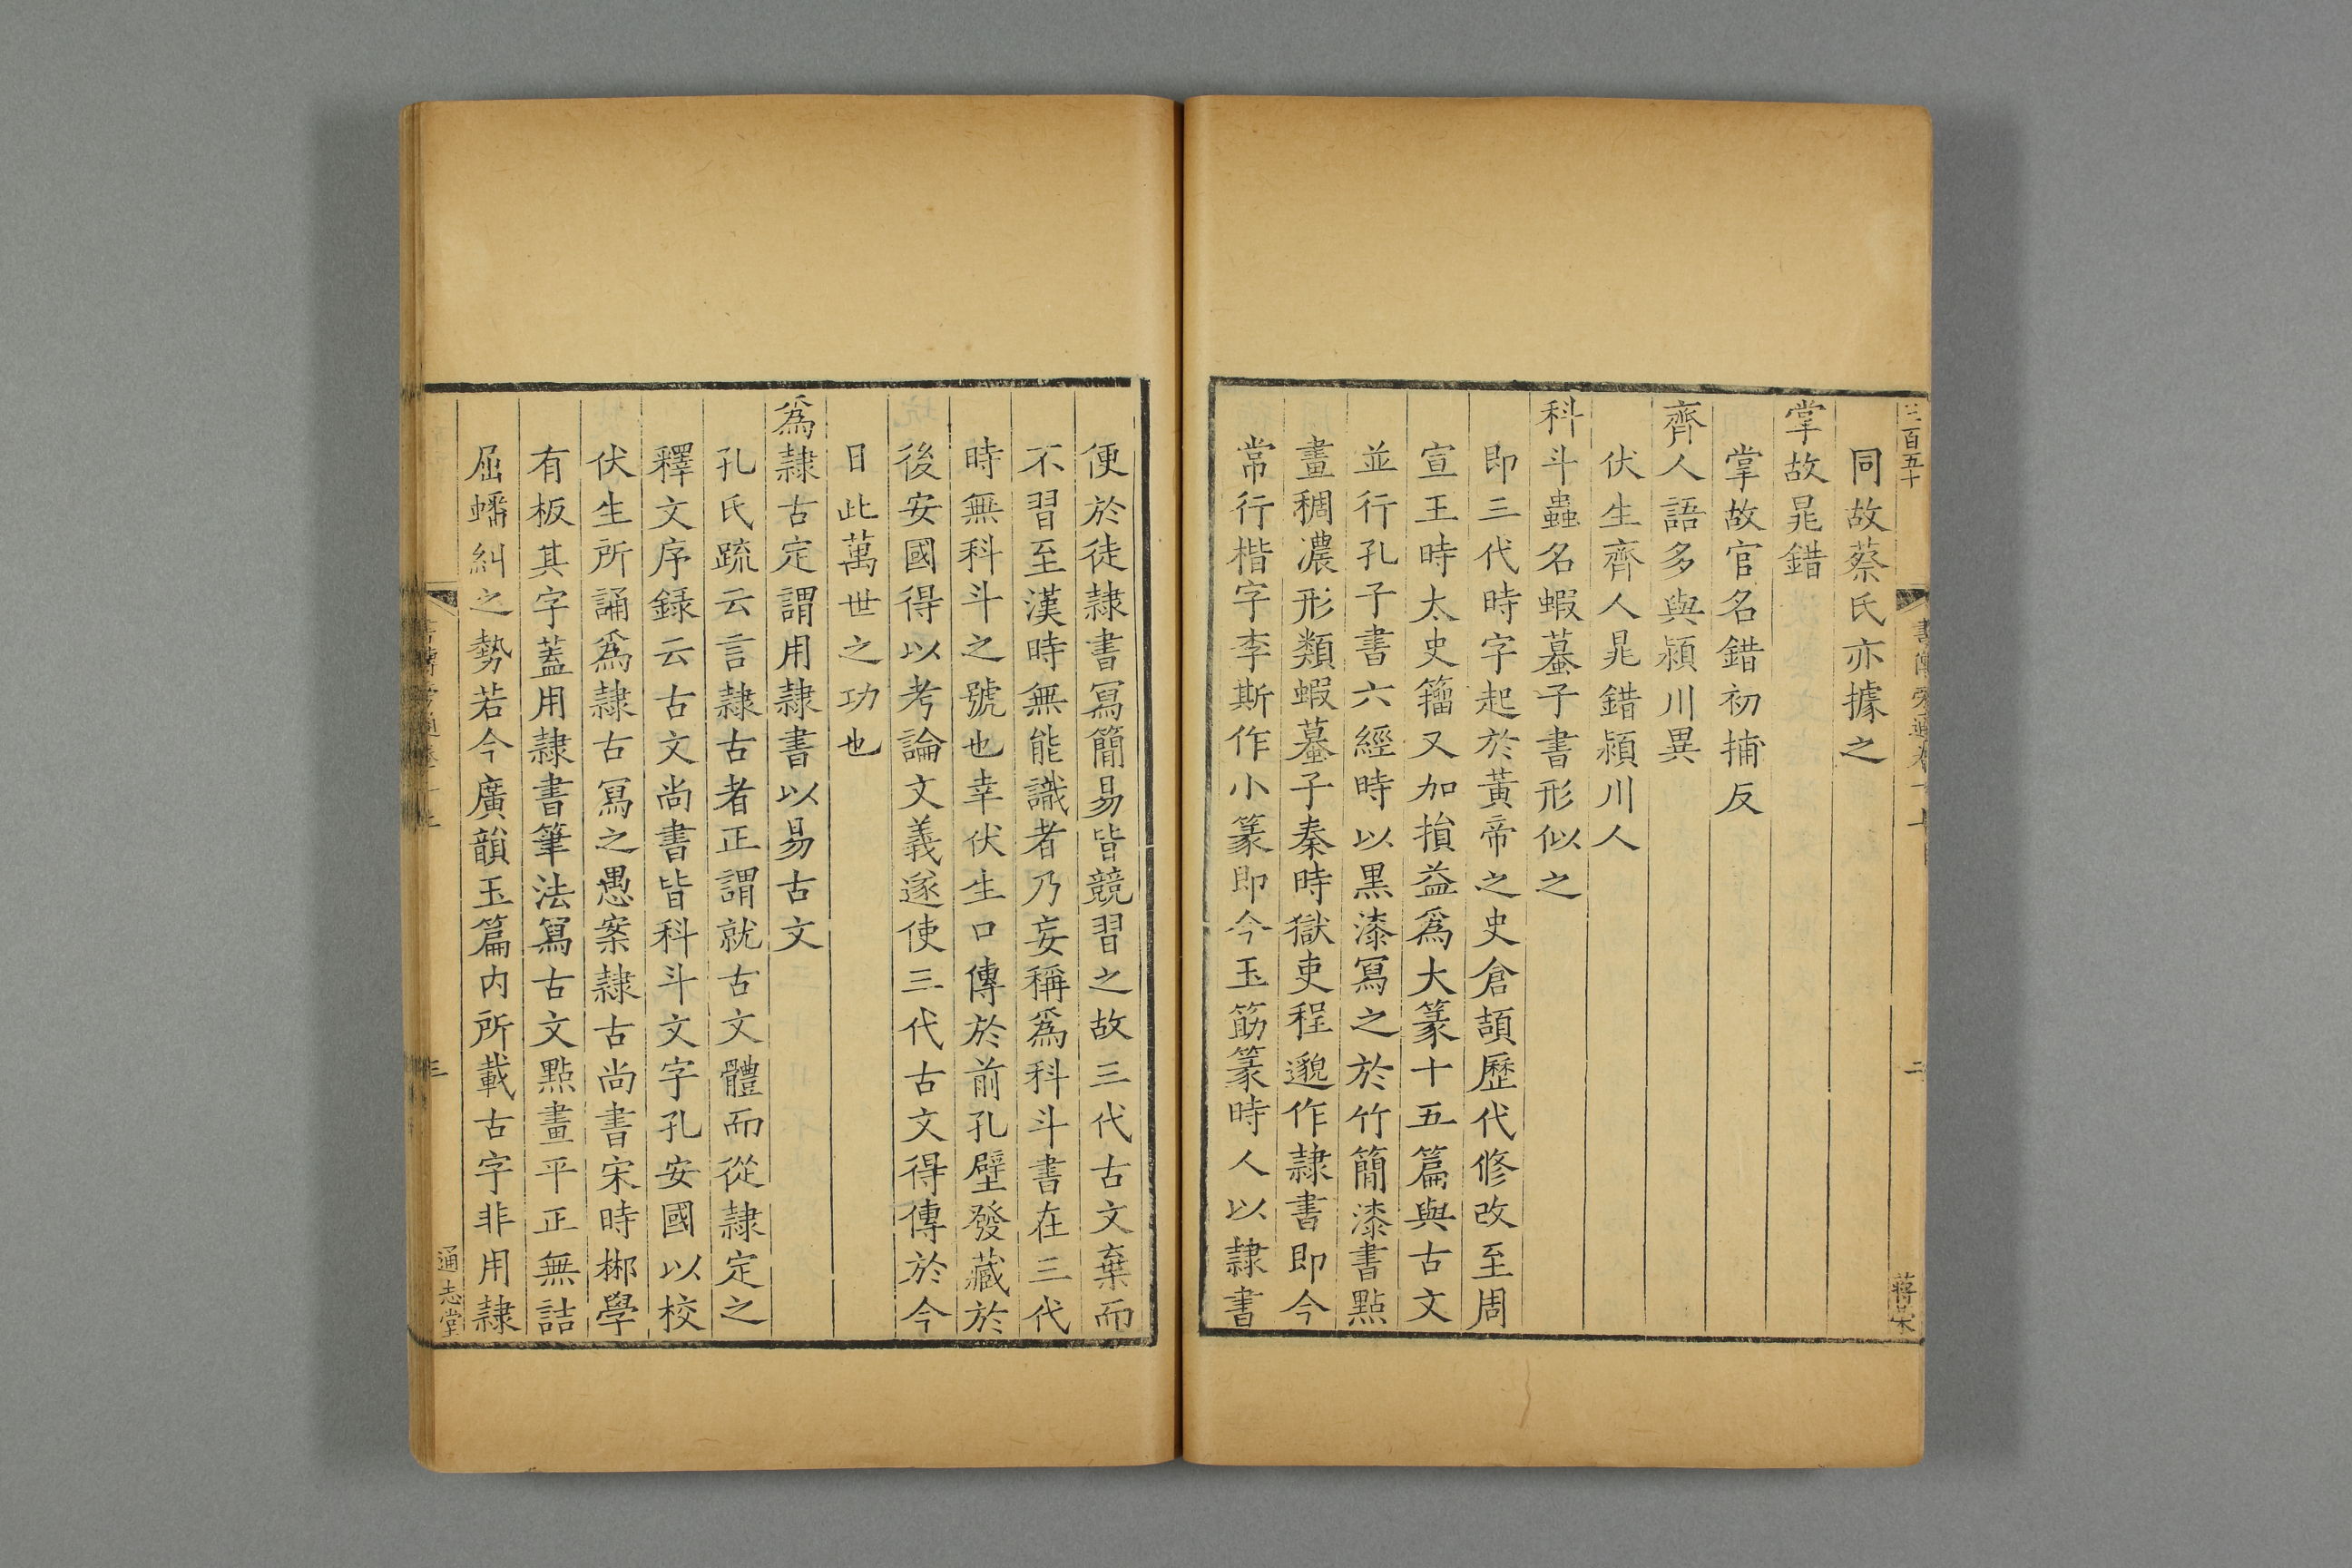 三百五十
同故蔡氏亦據之
掌故晁錯
掌故官名錯初捕反
齊人語多與潁川異
伏生齊人晁錯潁川人
科斗蟲名蝦蟇子書形似之
即三代時字起於黃帝之史倉頡歷代修改至周
宣王時太史籀又加損益爲大篆十五篇與古文
並行孔子書六經時以黑漆寫之於竹簡漆書點
畫稠濃形類蝦蟇子秦時獄吏程邈作隷書即今
常行楷字李斯作小篆即今玉筯篆時人以隷書
二
便於徒隷書寫簡易皆競習之故三代古文棄而
不習至漢時無能識者乃妄稱爲科斗書在三代
時無科斗之號也幸伏生口傳於前孔壁發藏於
後安國得以考論文義遂使三代古文得傳於今
日此萬世之功也
爲隷古定謂用隷書以易古文
孔氏疏云言隷古者正謂就古文體而從隷定之
釋文序録云古文尚書皆科斗文字孔安國以校
伏生所誦爲隷古寫之愚案隷古尚書宋時郴學
有板其字蓋用隷書筆法寫古文點畫平正無詰
屈蟠糾之勢若今廣韻玉篇内所載古字非用隷
三
通志堂